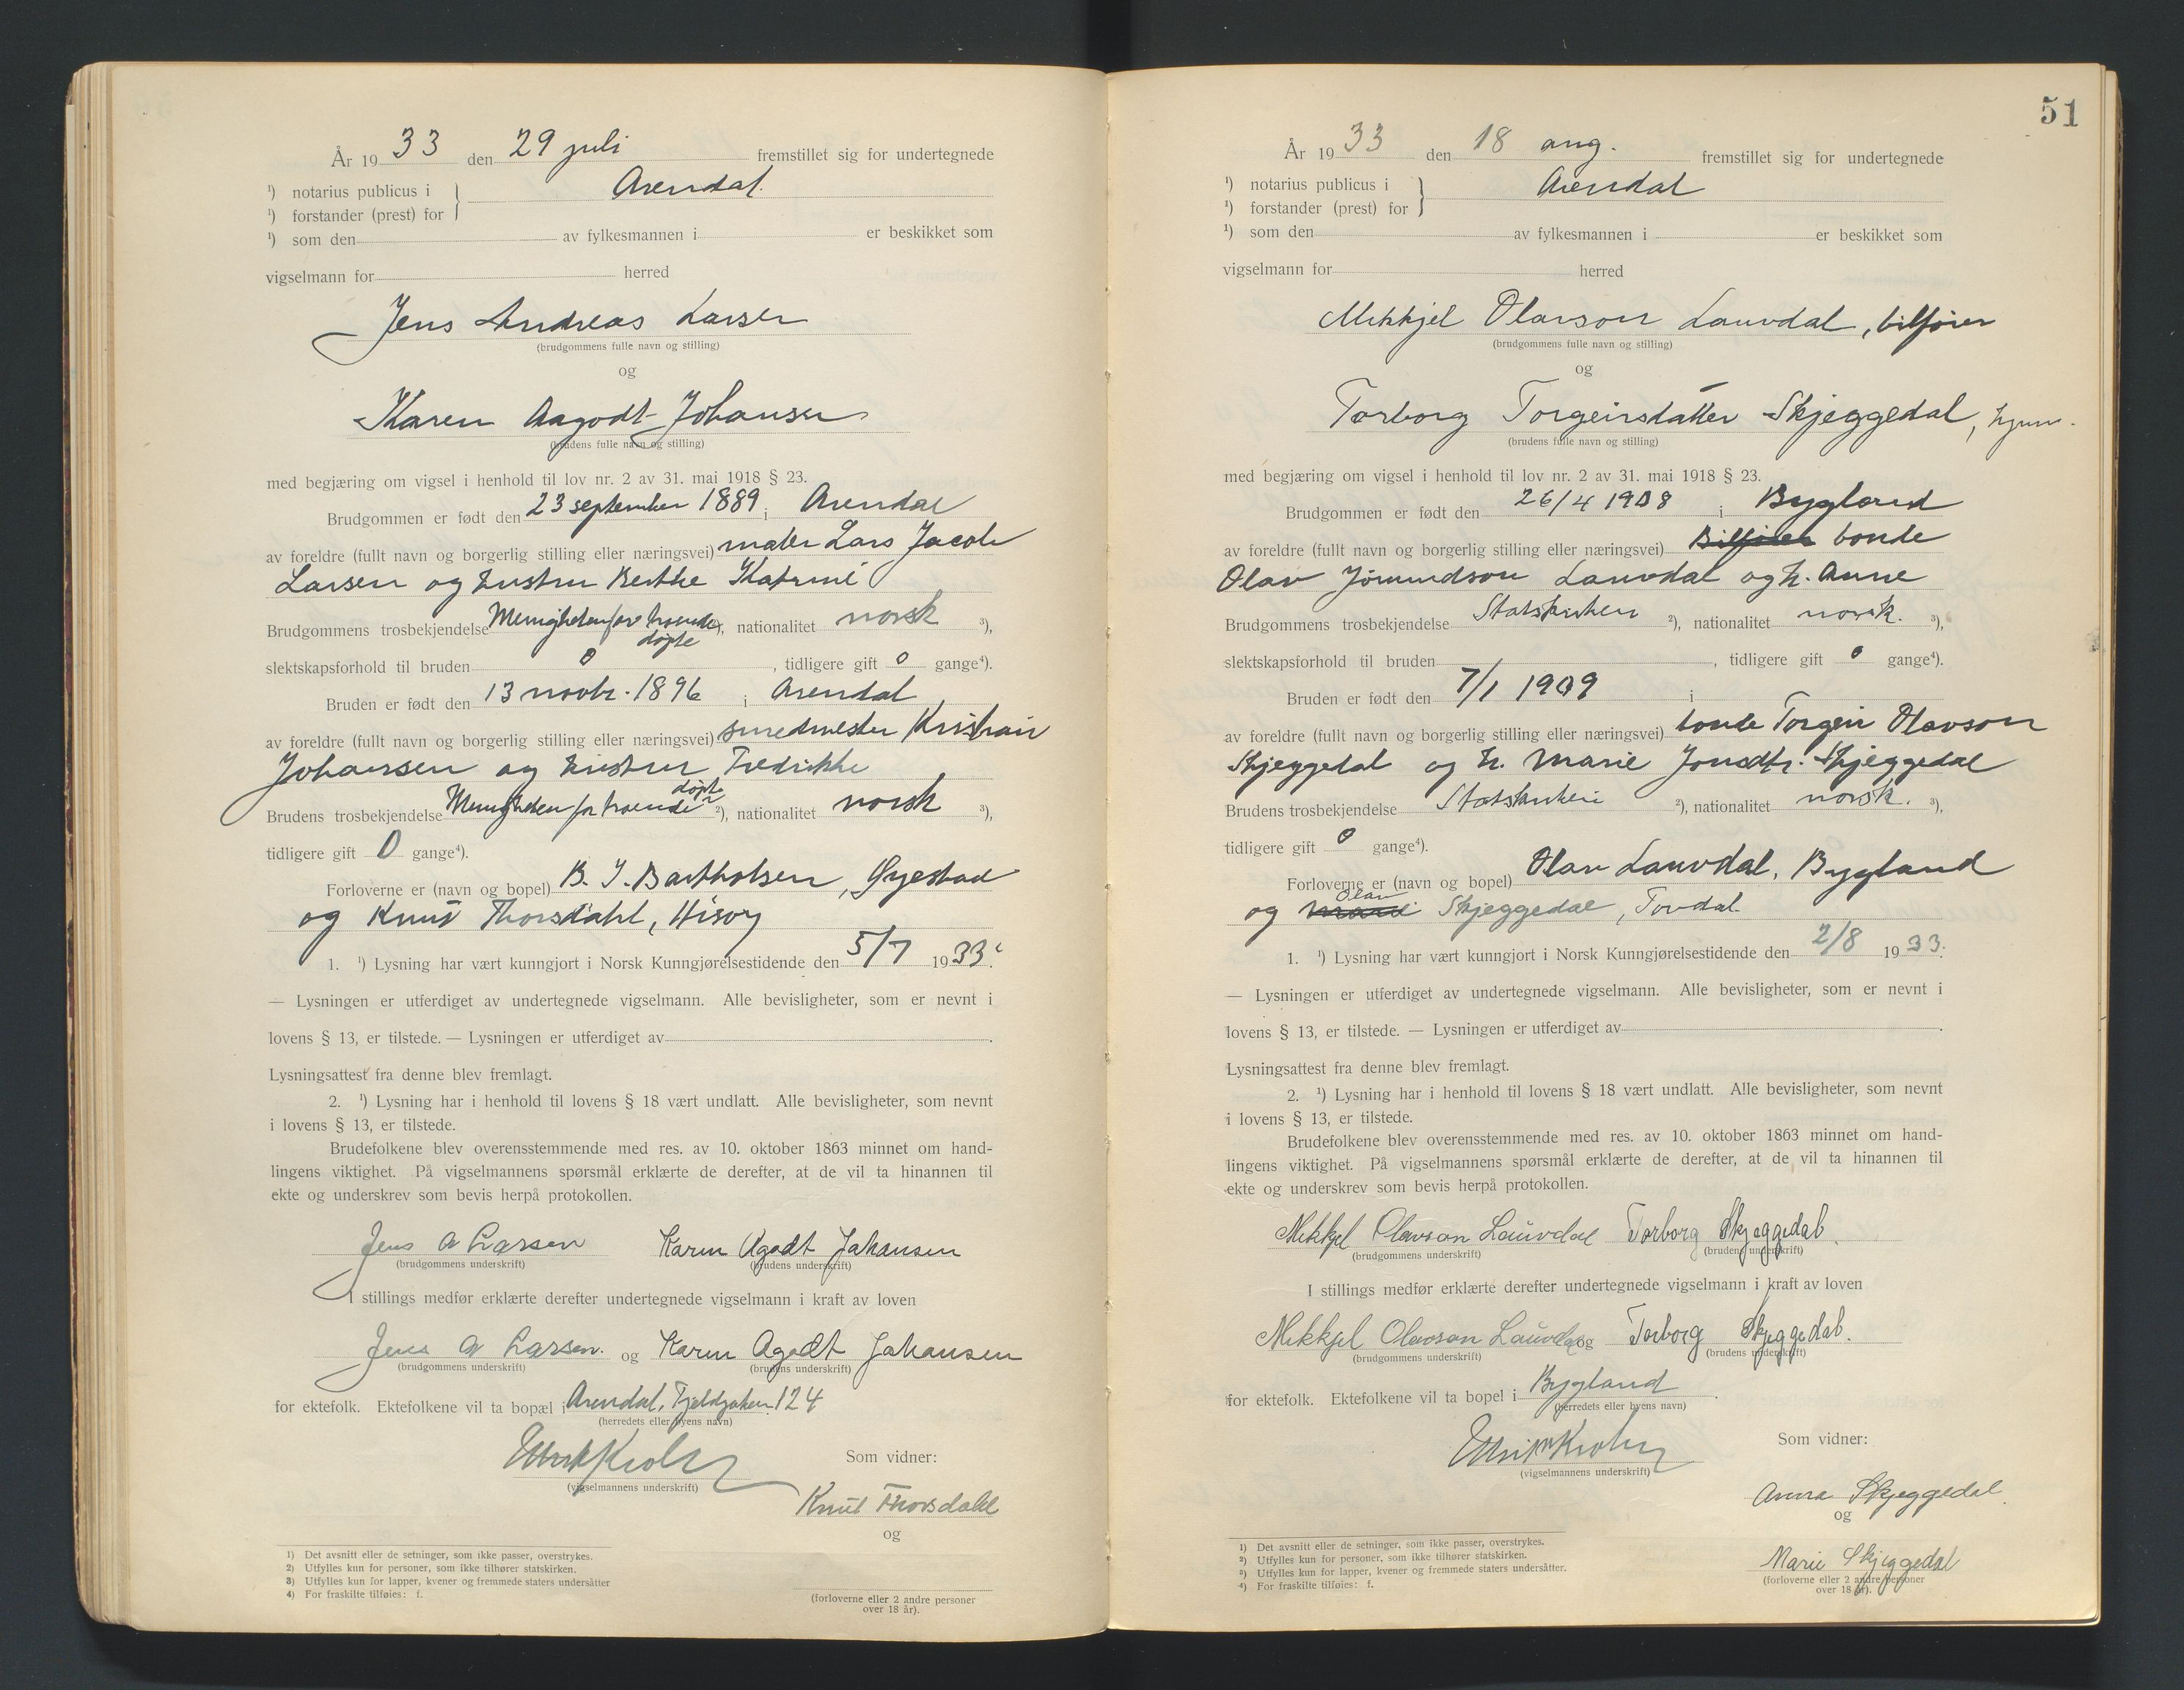 År 1933 den 29 juli fremstillet sig for undertegnede
¹) notarius publicus i } Arendal.
¹) forstander (prest) for
¹) som den av fylkesmannen i er beskikket som
vigselmann for herred
Jens Andreas Larsen
(brudgommens fulle navn og stilling)
og
Karen Aagodt Johansen
(brudens fulle navn og stilling)
med begjæring om vigsel i henhold til lov nr. 2 av 31. mai 1918 § 23.
Brudgommen er født den 23 september 1889 i Arendal
av foreldre (fullt navn og borgerlig stilling eller næringsvei) maler Lars Jacob
Larsen og hustru Berthe Katrine
Brudgommens trosbekjendelse Menigheten for troende døpte ²), nationalitet norsk ³),
slektskapsforhold til bruden 0, tidligere gift 0 gange⁴).
Bruden er født den 13 novbr. 1896 i Arendal
av foreldre (fullt navn og borgerlig stilling eller næringsvei) smedmester Kristian
Johansen og hustru Fredrikke
Brudens trosbekjendelse Menigheten for troende døpte ²), nationalitet norsk ³),
tidligere gift 0 gange⁴).
Forloverne er (navn og bopel) B. J. Bartholsen, Øyestad
og Knut Thorsdahl, Hisøy
1. ¹) Lysning har vært kunngjort i Norsk Kunngjørelsestidende den 5/7 1933.
— Lysningen er utferdiget av undertegnede vigselmann. Alle bevisligheter, som er nevnt i
lovens § 13, er tilstede. — Lysningen er utferdiget av .
Lysningsattest fra denne blev fremlagt.
2. ¹) Lysning har i henhold til lovens § 18 vært undlatt. Alle bevisligheter, som nevnt
i lovens § 13, er tilstede.
Brudefolkene blev overensstemmende med res. av 10. oktober 1863 minnet om hand-
lingens viktighet. På vigselmannens spørsmål erklærte de derefter, at de vil ta hinannen til
ekte og underskrev som bevis herpå protokollen.
Jens A Larsen Karen Agodt Johansen
(brudgommens underskrift) (brudens underskrift)
I stillings medfør erklærte derefter undertegnede vigselmann i kraft av loven
Jens A Larsen. og Karen Agodt Johansen
(brudgommens underskrift) (brudens underskrift)
for ektefolk. Ektefolkene vil ta bopæl i Arendal, Fjeldgaten 124
(herredets eller byens navn)
Ulrik Krohn
(vigselmannens underskrift)
Som vidner:
Knut Thorsdahl
og
(forloverne eller 2 andre personer
over 18 år).
1) Det avsnitt eller de setninger, som ikke passer, overstrykes.
2) Utfylles kun for personer, som ikke tilhører statskirken.
3) Utfylles kun for lapper, kvener og fremmede staters undersåtter
4) For fraskilte tilføies: f.
51
År 1933 den 18 aug. fremstillet sig for undertegnede
¹) notarius publicus i } Arendal
¹) forstander (prest) for
¹) som den av fylkesmannen i er beskikket som
vigselmann for herred
Mikkjel Olavson Lauvdal, bilfører
(brudgommens fulle navn og stilling)
og
Torborg Torgeirsdatter Skjeggedal, hjem.
(brudens fulle navn og stilling)
med begjæring om vigsel i henhold til lov nr. 2 av 31. mai 1918 § 23.
Brudgommen er født den 26/4 1908 i Bygland
av foreldre (fullt navn og borgerlig stilling eller næringsvei) Bilfører bonde
Olav Jørundson Lauvdal og h. Anne
Brudgommens trosbekjendelse Statskirken ²), nationalitet norsk. ³),
slektskapsforhold til bruden , tidligere gift 0 gange⁴).
Bruden er født den 7/1 1909 i
av foreldre (fullt navn og borgerlig stilling eller næringsvei) bonde Torgeir Olavson
Skjeggedal og h. Marie Jonsdtr. Skjeggedal
Brudens trosbekjendelse Statskirken ²), nationalitet norsk. ³),
tidligere gift 0 gange⁴).
Forloverne er (navn og bopel) Olav Lauvdal, Bygland
og Marie Olav Skjeggedal, Tovdal.
1. ¹) Lysning har vært kunngjort i Norsk Kunngjørelsestidende den 2/8 1933.
— Lysningen er utferdiget av undertegnede vigselmann. Alle bevisligheter, som er nevnt i
lovens § 13, er tilstede. — Lysningen er utferdiget av .
Lysningsattest fra denne blev fremlagt.
2. ¹) Lysning har i henhold til lovens § 18 vært undlatt. Alle bevisligheter, som nevnt
i lovens § 13, er tilstede.
Brudefolkene blev overensstemmende med res. av 10. oktober 1863 minnet om hand-
lingens viktighet. På vigselmannens spørsmål erklærte de derefter, at de vil ta hinannen til
ekte og underskrev som bevis herpå protokollen.
Mikkjel Olavson Lauvdal Torborg Skjeggedal.
(brudgommens underskrift) (brudens underskrift)
I stillings medfør erklærte derefter undertegnede vigselmann i kraft av loven
Mikkjel Olavson Lauvdal og Torborg Skjeggedal.
(brudgommens underskrift) (brudens underskrift)
for ektefolk. Ektefolkene vil ta bopel i Bygland.
(herredets eller byens navn)
Ulrik Krohn
(vigselmannens underskrift)
Som vidner:
Anna Skjeggedal.
og
Marie Skjeggedal
(forloverne eller 2 andre personer
over 18 år).
1) Det avsnitt eller de setninger, som ikke passer, overstrykes.
2) Utfylles kun for personer, som ikke tilhører statskirken.
3) Utfylles kun for lapper, kvener og fremmede staters undersåtter.
4) For fraskilte tilføies: f.